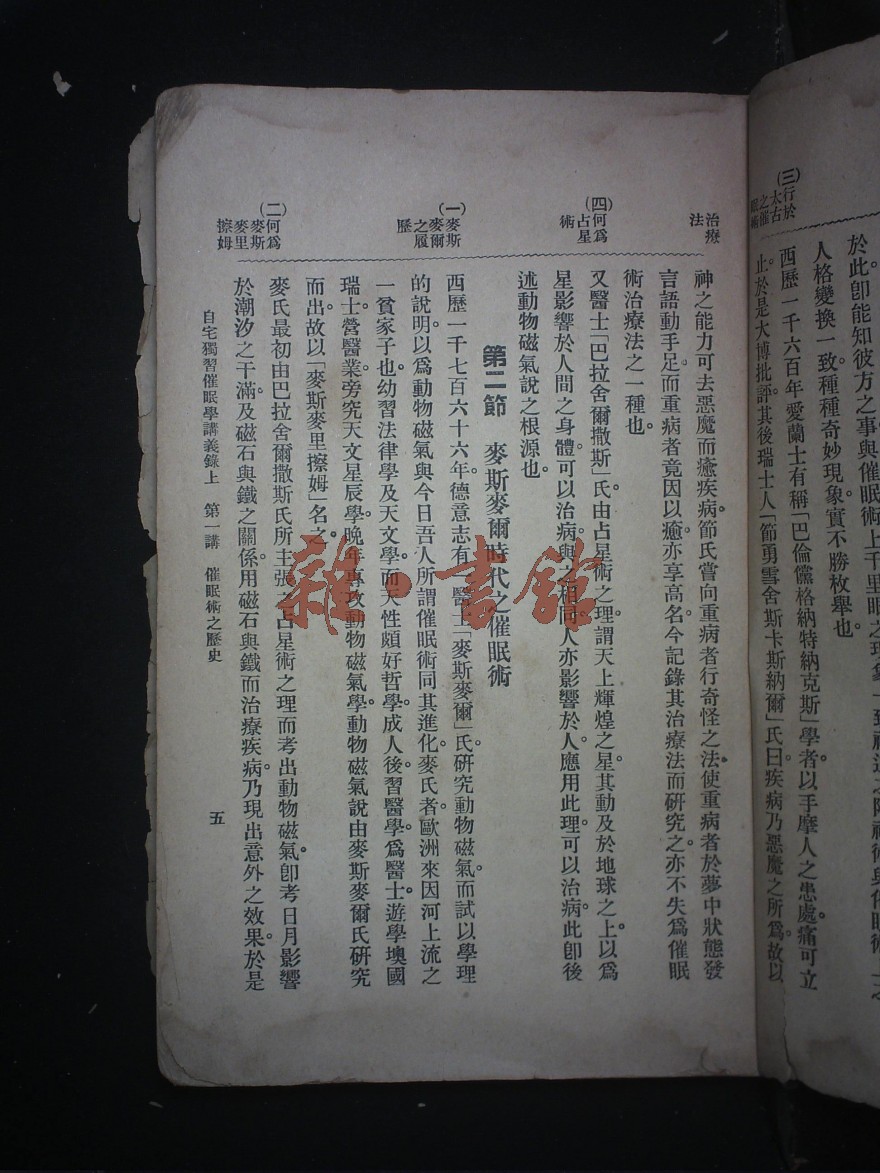 於此卽能知彼方之事與催眠術上千里眼之現象一致
人格變換一致種種奇妙現象。實不勝枚舉也。
(三)行於太古之催眠術
西歷一千六百年愛蘭士有稱「巴倫儻格納特納克斯」學者。以手摩人之患處。痛可立
止。於是大博批評。其後瑞士人「節勇雪舍斯卡斯納爾」氏曰。疾病乃惡魔之所爲。故以
治療法
神之能力可去惡魔而癒疾病。節氏嘗向重病者行奇怪之法使重病者於夢中狀態發
言語動手足。而重病者竟因以癒。亦享高名。今記錄其治療法而研究之。亦不失爲催眠
術治療法之一種也。
(四)何爲占星術
又醫士「巴拉舍爾撒斯」氏由占星術之理。謂天上輝煌之星。其動及於地球之上。以爲
星影響於人間之身體。可以治病。與之相同。人亦影響於人。應用此理。可以治病。此卽後
述動物磁氣說之根源也。
第二節 麥斯麥爾時代之催眠術
(一)麥斯麥爾之履歷
西歷一千七百六十六年。德意志有一醫士「麥斯麥爾」氏。研究動物磁氣。而試以學理
的說明。以爲動物磁氣與今日吾人所謂催眠術同其進化。麥氏者。歐洲來因河上流之
一貧家子也。幼習法律學及天文學。而天性頗好哲學。成人後習醫學。爲醫士。遊學墺國
瑞士。營醫業。旁究天文星辰學。晚年專攻動物磁氣學。動物磁氣說由麥斯麥爾氏研究
而出。故以「麥斯麥里擦姆」名之。
(二)何爲麥斯麥里擦姆
麥氏最初由巴拉舍爾撒斯氏所主張之占星術之理而考出動物磁氣。卽考日月影響
於潮汐之干滿。及磁石與鐵之關係。用磁石與鐵而治療疾病。乃現出意外之效果。於是
自宅獨習催眠學講義錄上 第一講 催眠術之歷史 五
雜·書館